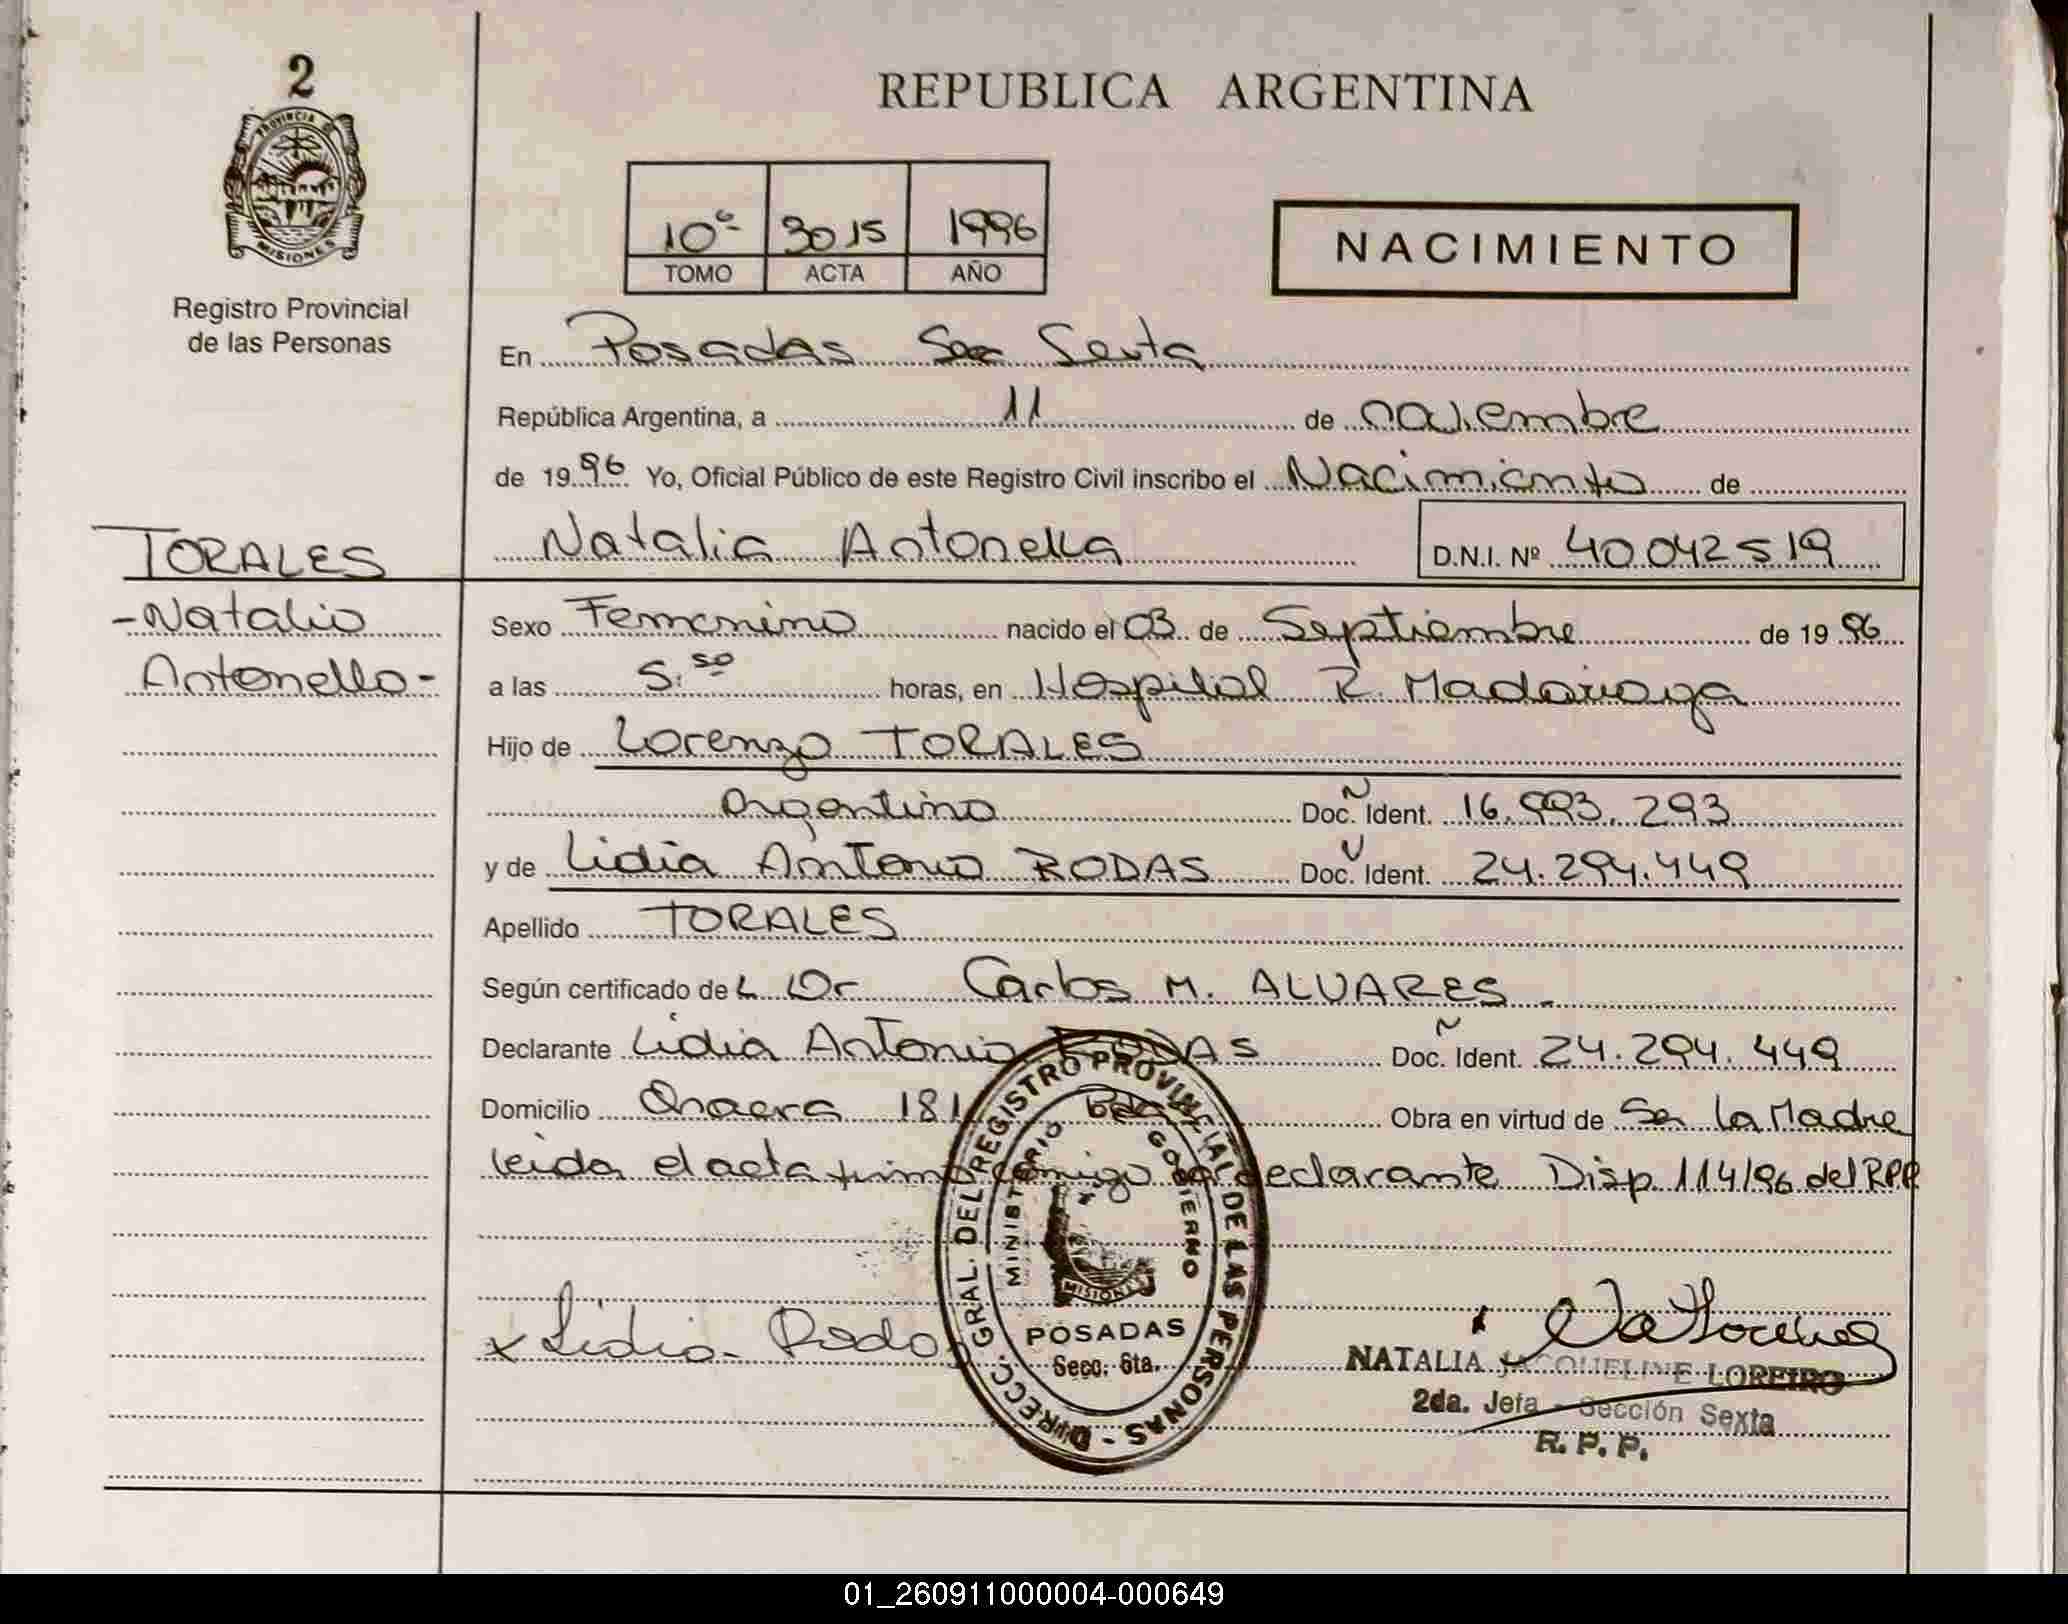 2
PROVINCIA D
MISIONES
Registro Provincial
de las Personas
REPUBLICA ARGENTINA
10º 3015 1996
TOMO ACTA AÑO
NACIMIENTO
En Posadas Sec Sexta
República Argentina, a 11 de noviembre
de 1996 Yo, Oficial Público de este Registro Civil inscribo el Nacimiento de
Natalia Antonella D.N.I. Nº 40042519
TORALES
-Natalia
Antonella-
Sexo Femenino nacido el 03 de Septiembre de 1996
a las 5:50 horas, en Hospital R. Madariaga
Hijo de Lorenzo TORALES
Argentino Doc. Ident. 16.993.293
y de Lidia Antonia RODAS Doc. Ident. 24.294.449
Apellido TORALES
Según certificado de L Dr Carlos M. ALVARES.
Declarante Lidia Antonia RODAS Doc. Ident. 24.294.449
Domicilio 181 Obra en virtud de Ser la Madre
leida el acta firma conmigo la declarante Disp. 114/96 del RPP
x Lidia Rodas
DIRECC. GRAL. DEL REGISTRO PROVINCIAL DE LAS PERSONAS -
MINISTERIO GOBIERNO
MISIONES
POSADAS
Secc. 6ta.
NATALIA JACQUELINE LOREIRO
2da. Jefa - Sección Sexta
R. P. P.
01_260911000004-000649